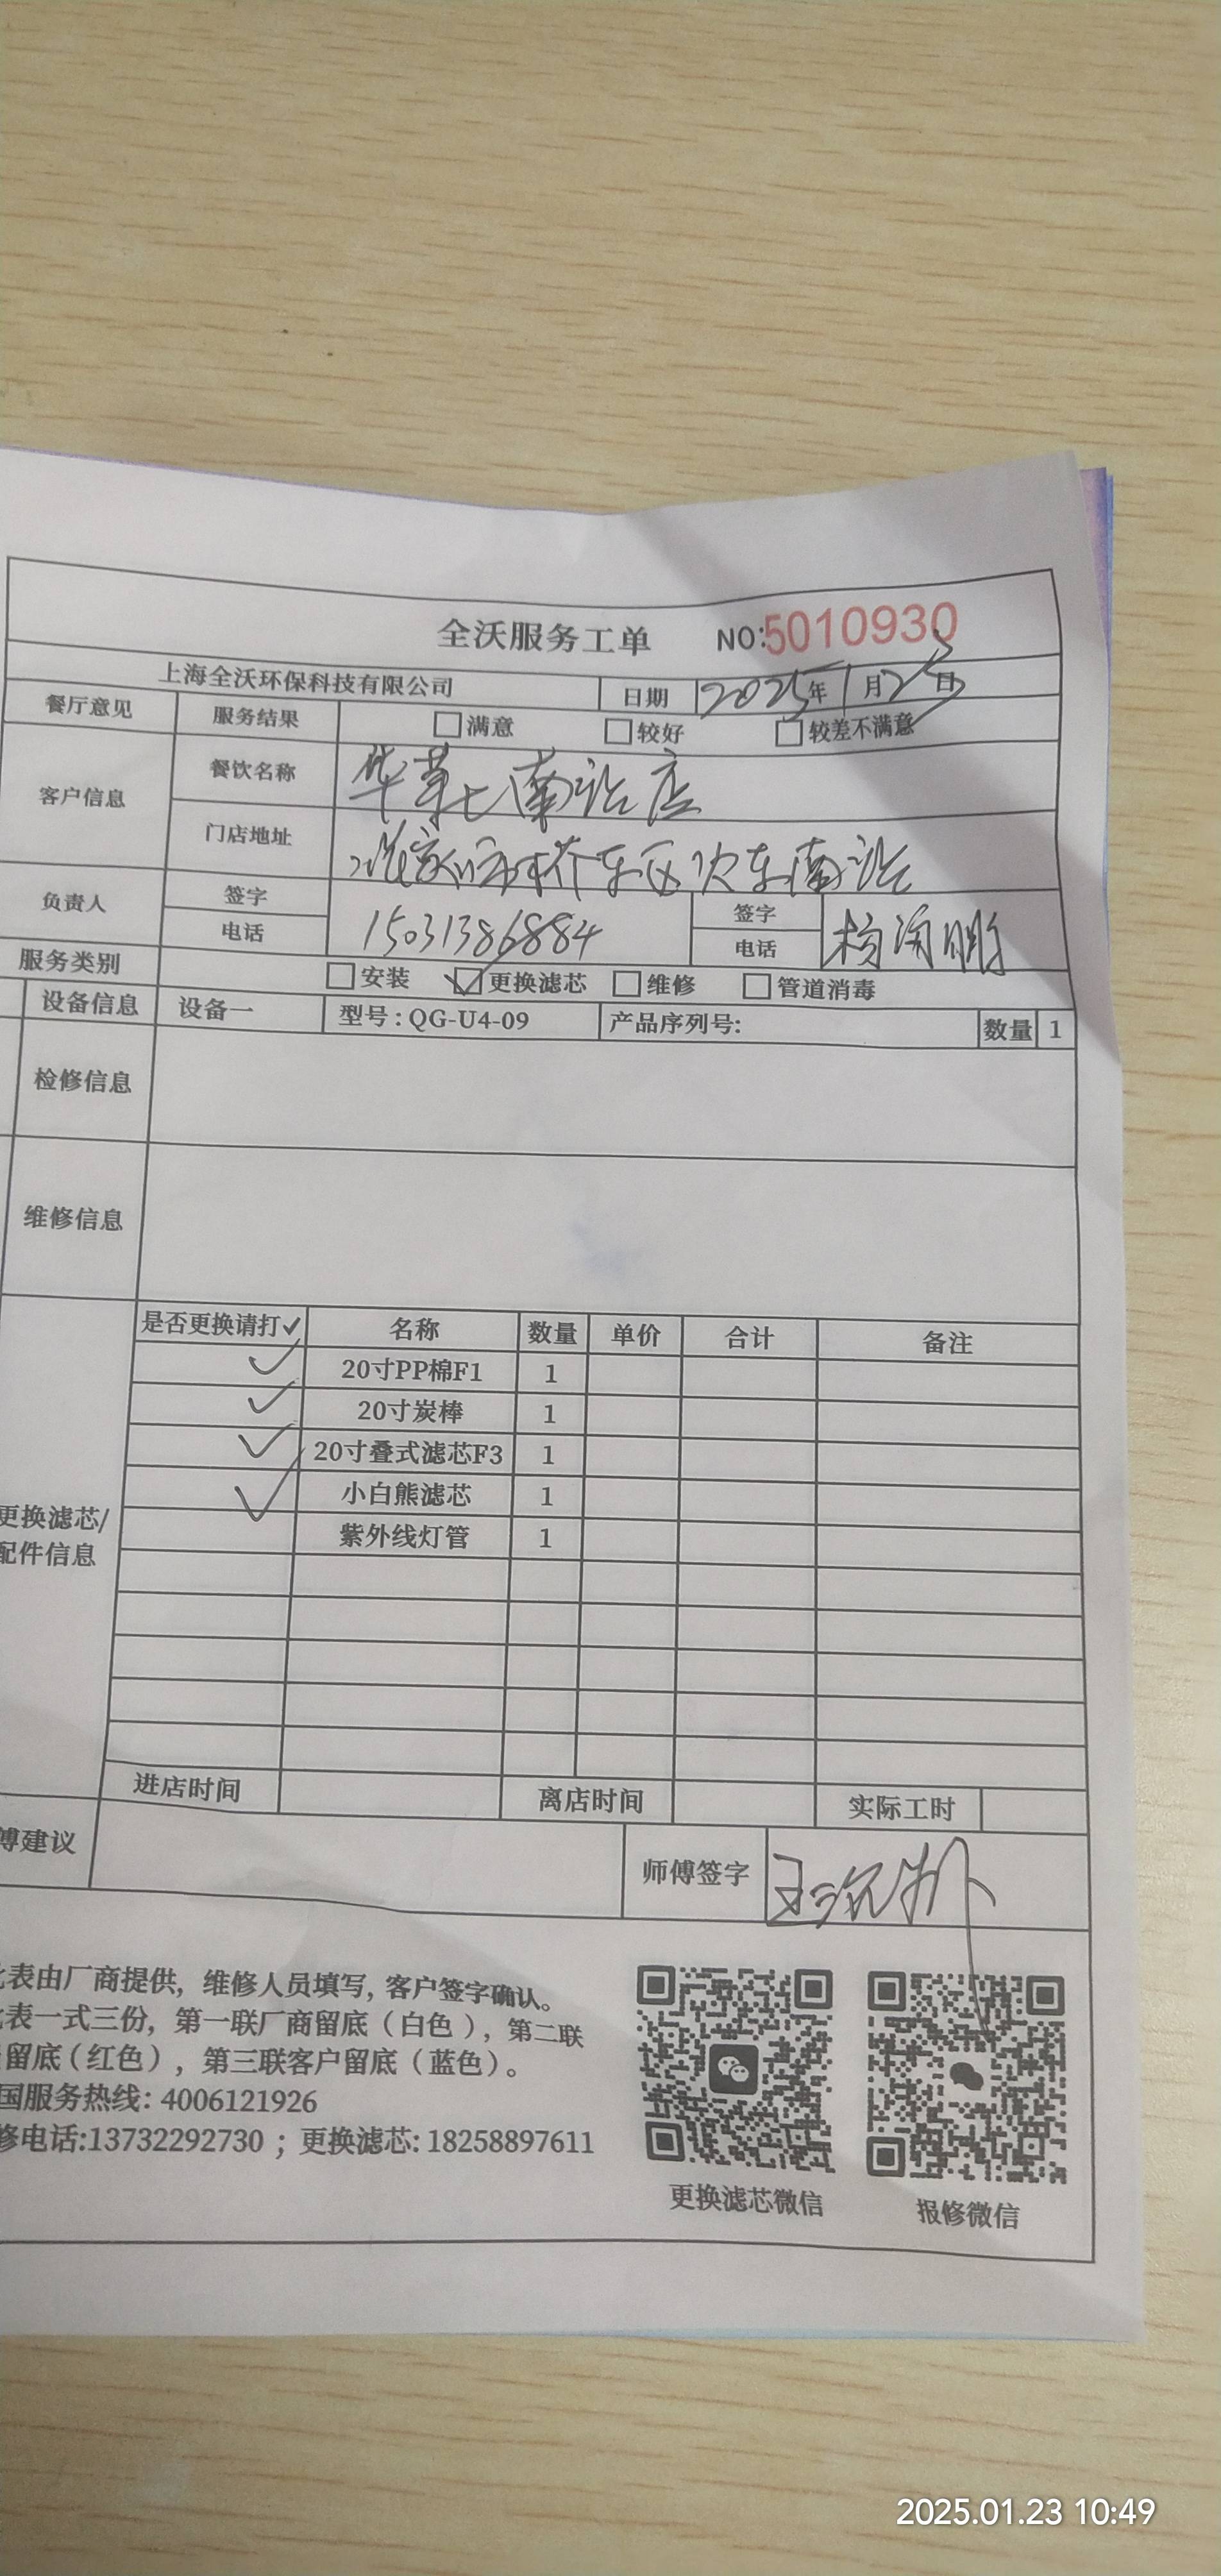 全沃服务工单 NO:5010930
上海全沃环保科技有限公司 日期 2025年1月23日
餐厅意见 服务结果 满意 较好 较差不满意
客户信息 餐饮名称 华莱士南站店
门店地址 张家口市桥东区 东南站
负责人 签字 签字
电话 15031386884 电话
服务类别 安装 更换滤芯 维修 管道消毒
设备信息 设备一 型号:QG-U4-09 产品序列号: 数量 1
检修信息
维修信息
更换滤芯/
配件信息
是否更换请打✓ 名称 数量 单价 合计 备注
✓ 20寸PP棉F1 1
✓ 20寸炭棒 1
✓ 20寸叠式滤芯F3 1
✓ 小白熊滤芯 1
紫外线灯管 1
进店时间 离店时间 实际工时
傅建议 师傅签字
表由厂商提供,维修人员填写,客户签字确认。
表一式三份,第一联厂商留底(白色),第二联
留底(红色),第三联客户留底(蓝色)。
国服务热线: 4006121926
修电话:13732292730 ; 更换滤芯: 18258897611
更换滤芯微信 报修微信
2025.01.23 10:49